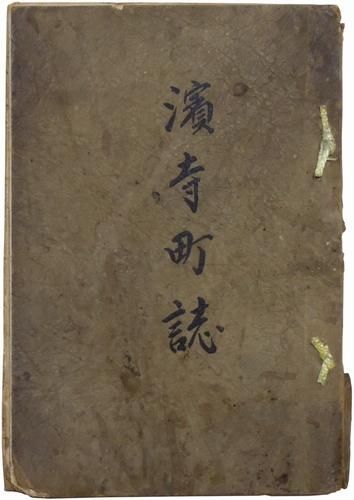 濱寺町誌